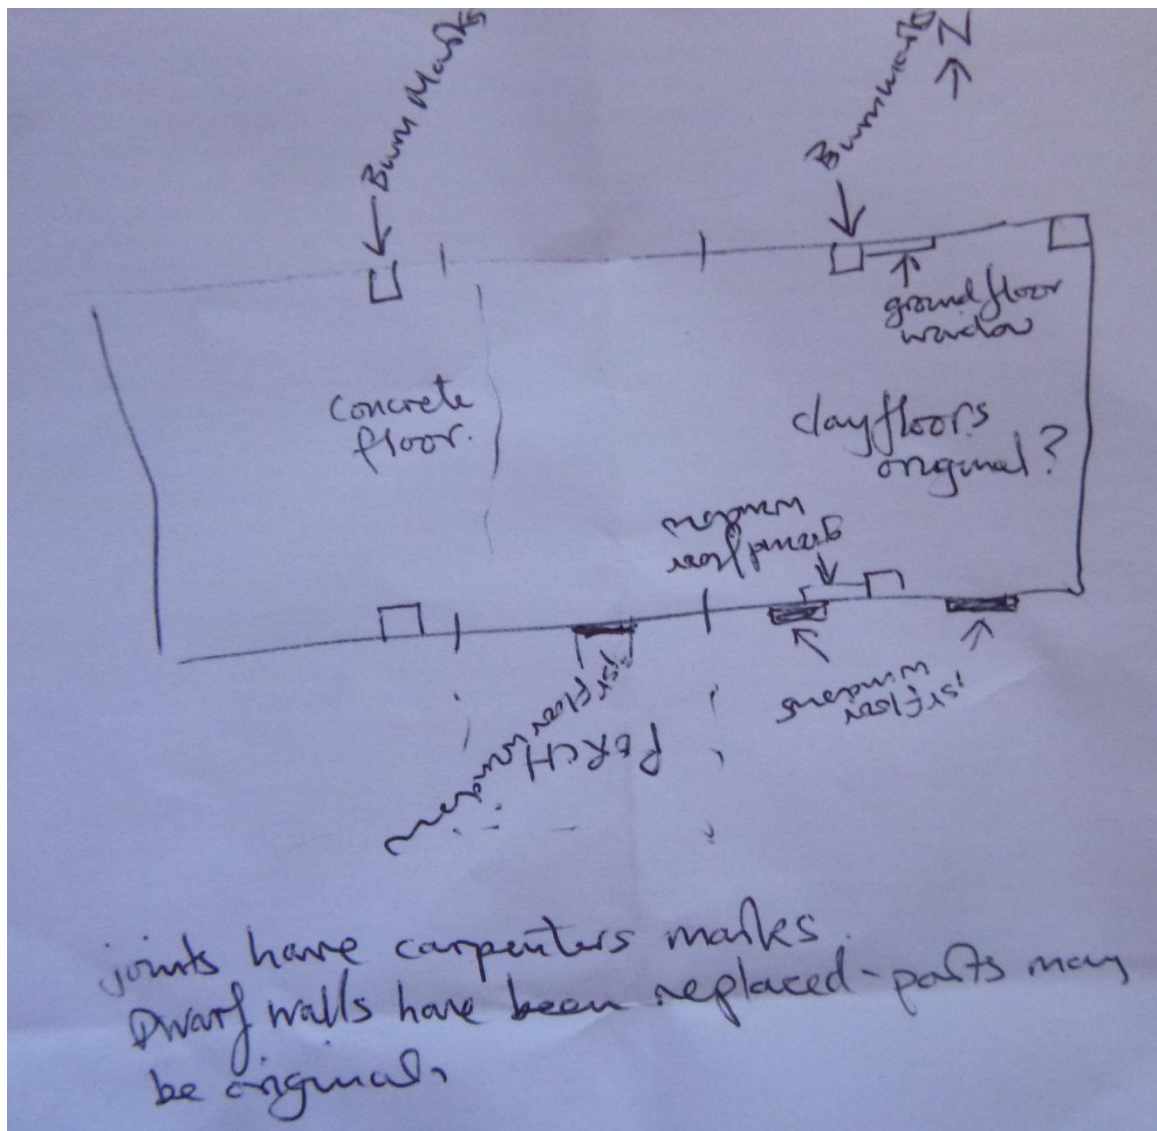 Burn Marks
Burnmarks
N
ground floor
window
concrete
floor.
clay floors
original?
ground floor
window
1st floor
windows
1st floor window
PORCH
joints have carpenters marks.
Dwarf walls have been replaced - parts may
be original.